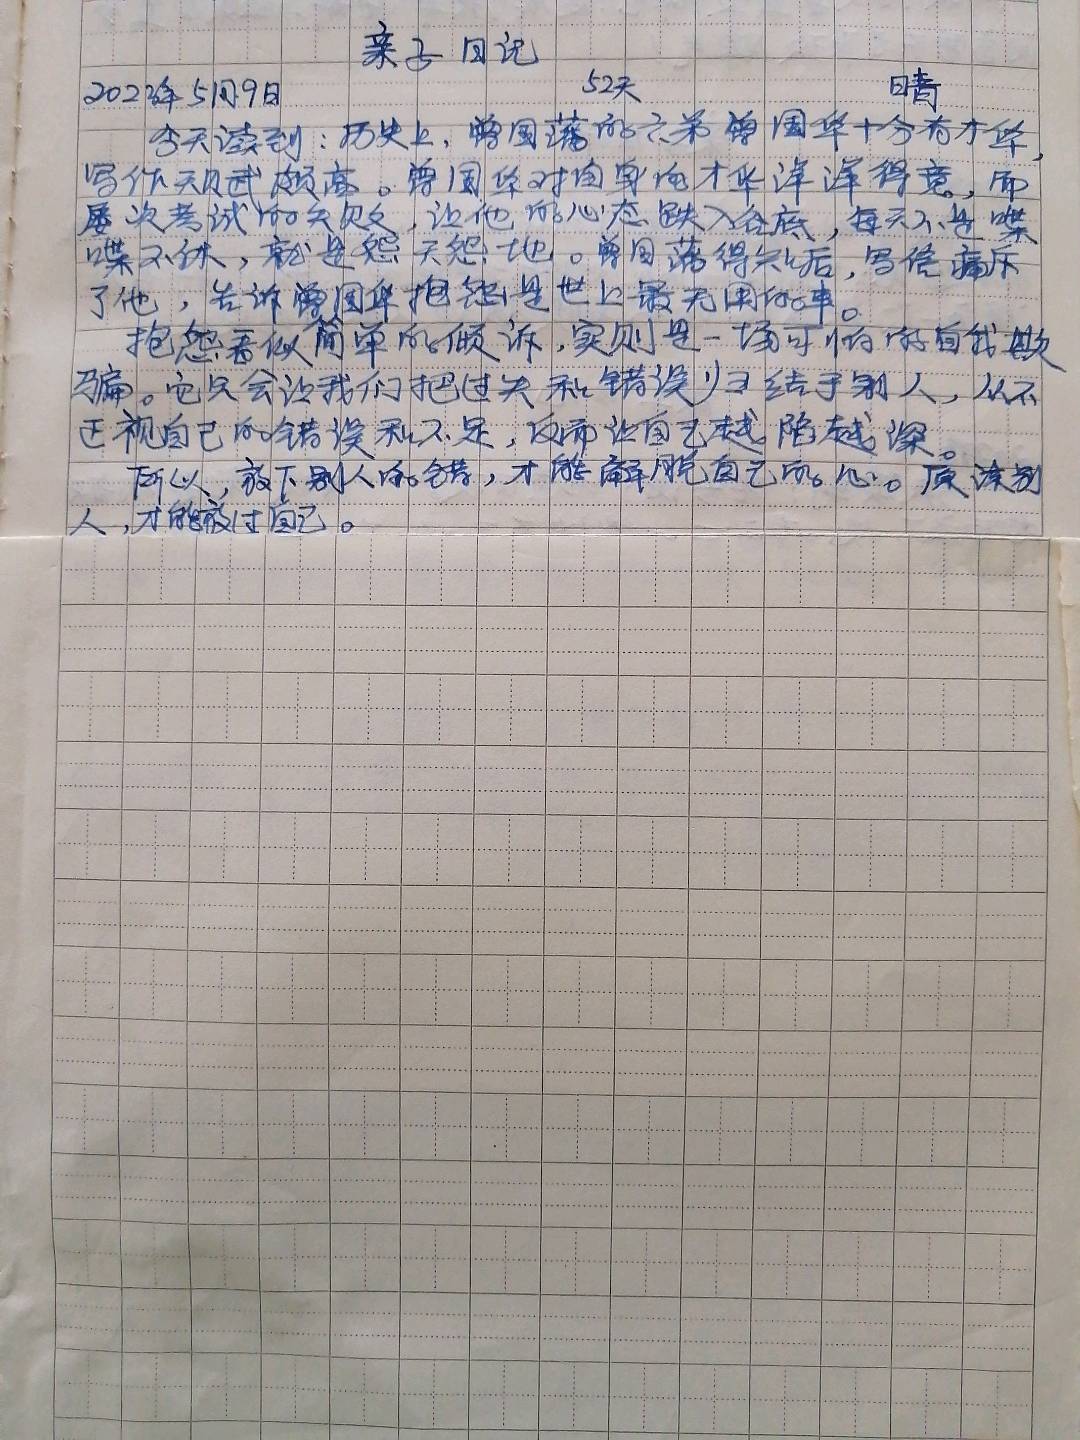 亲子日记
2022年5月9日 52天 晴
今天读到：历史上，曾国藩的六弟曾国华十分有才华，
写作天赋颇高。曾国华对自身的才华洋洋得意，而
屡次考试的失败，让他的心态跌入谷底，每天不是喋
喋不休，就是怨天怨地。曾国藩得知后，写信痛斥
了他，告诉曾国华抱怨是世上最无用的事。
抱怨看似简单的倾诉，实则是一场可怕的自我欺
骗。它只会让我们把过失和错误归结于别人，从不
正视自己的错误和不足，反而让自己越陷越深。
所以，放下别人的错，才能解脱自己的心。原谅别
人，才能放过自己。